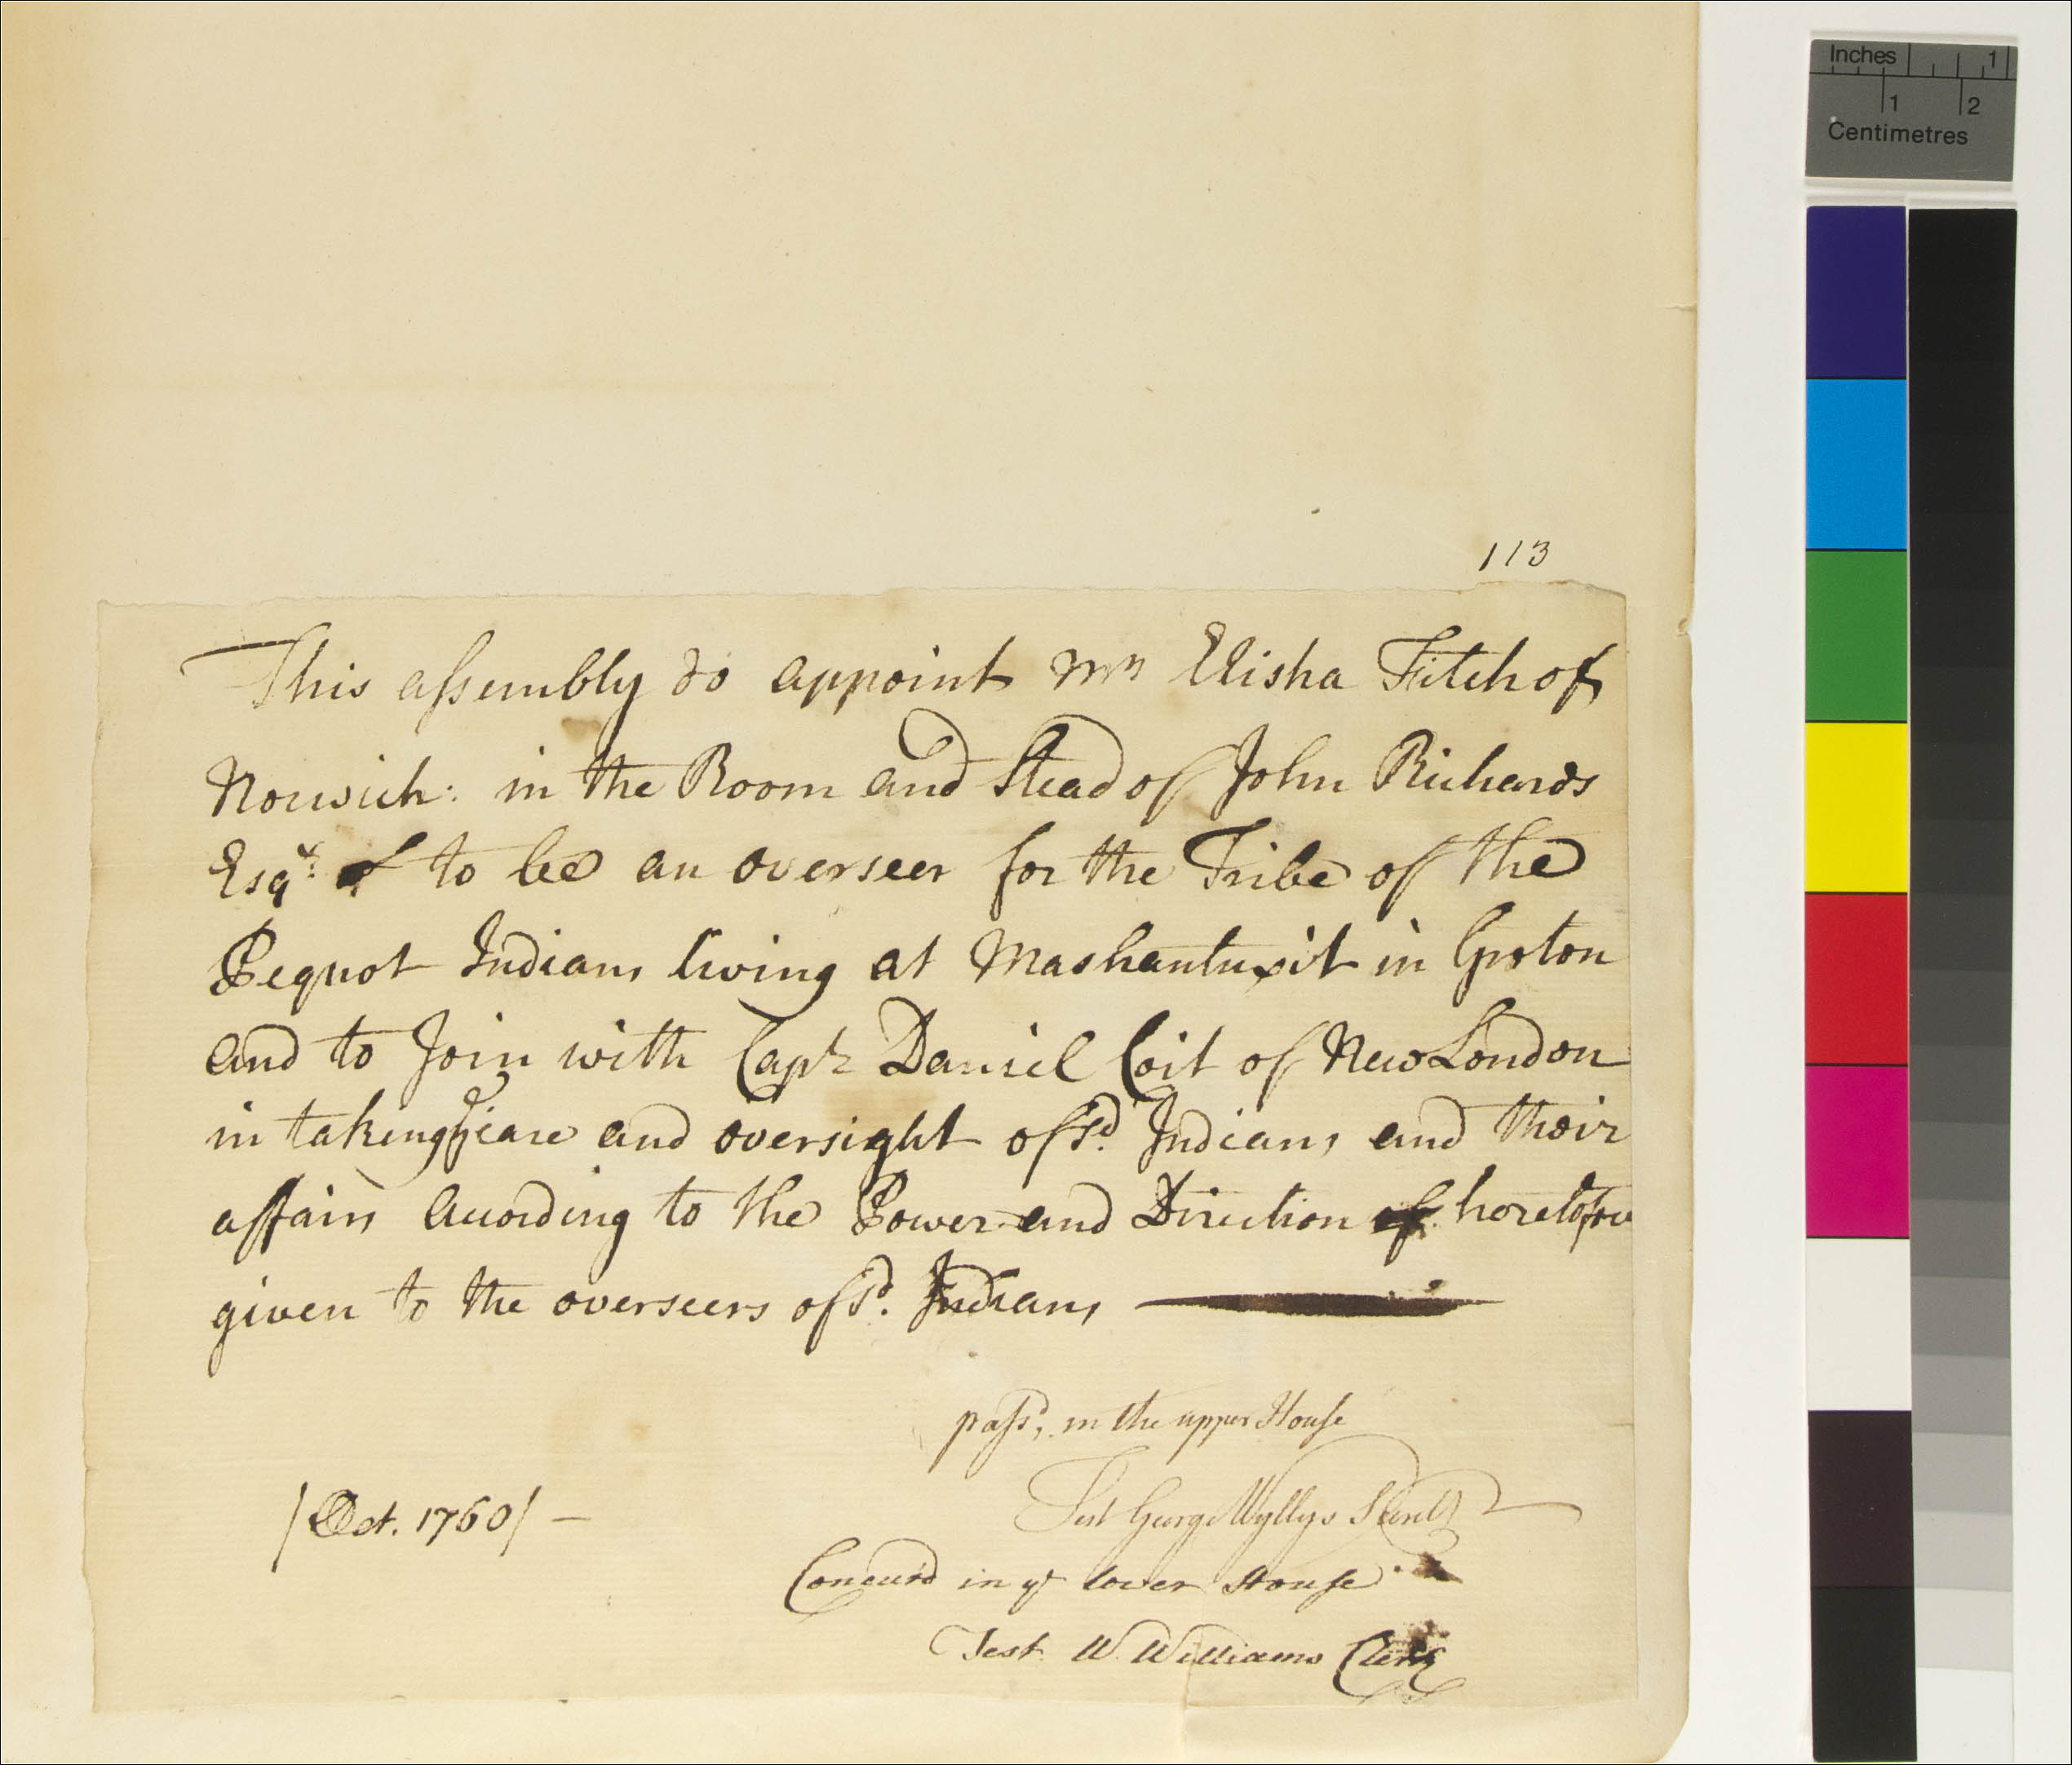 Inches 1
1 2
Centimetres
113
This assembly do appoint Mr Elisha Fitch of
Norwich: in the Room and Stead of John Richards
Esqr. to be an overseer for the Tribe of the
Pequot Indians living at Mashantuxit in Groton
and to Join with Capt Daniel Coit of New London
in taking care and oversight of sd. Indians and their
affairs according to the Power and Direction heretofore
given to the overseers of sd. Indians
passd, in the upper House
Test George Wyllys Secrety
/Oct. 1760/ –
Concurd in ye lower House
Test W. Williams Clerk